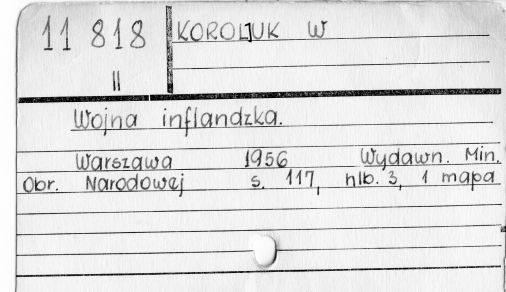 11 818 KOROLJUK W
II
Wojna inflandzka.
Warszawa 1956 Wydawn. Min.
Obr. Narodowej s. 117, nlb. 3, 1 mapa